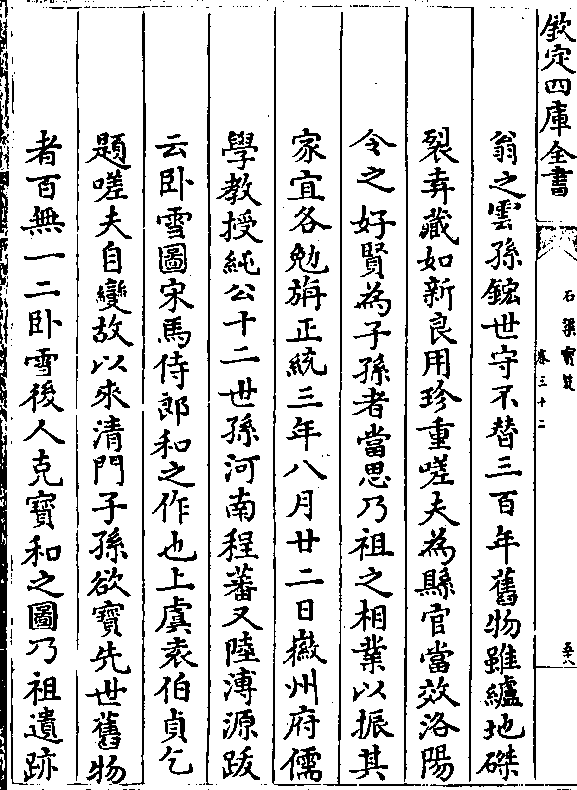 欽定四庫全書
石渠寶笈
卷三十二
翁之雲孫鋐世守不替三百年舊物雖纑地磔
裂弆藏如新良用珍重嗟夫為縣官當效洛陽
令之好賢為子孫者當思乃祖之相業以振其
家宜各勉旃正統三年八月廿二日徽州府儒
學教授純公十二世孫河南程蕃又陸溥源跋
云卧雪圖宋馬侍郎和之作也上虞袁伯貞乞
題嗟夫自變故以來清門子孫欲寶先世舊物
者百無一二卧雪後人克寶和之圖乃祖遺跡